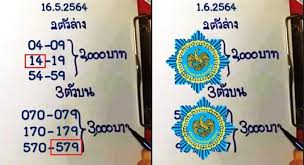 16.5.2564
2ตัวล่าง
04-09
14-19
54-59
3,000บาท
3ตัวบน
070-079
170-179
570-579
3,000บาท
1.6.2564
2ตัวล่าง
3,000บาท
3ตัวบน
3,000บาท